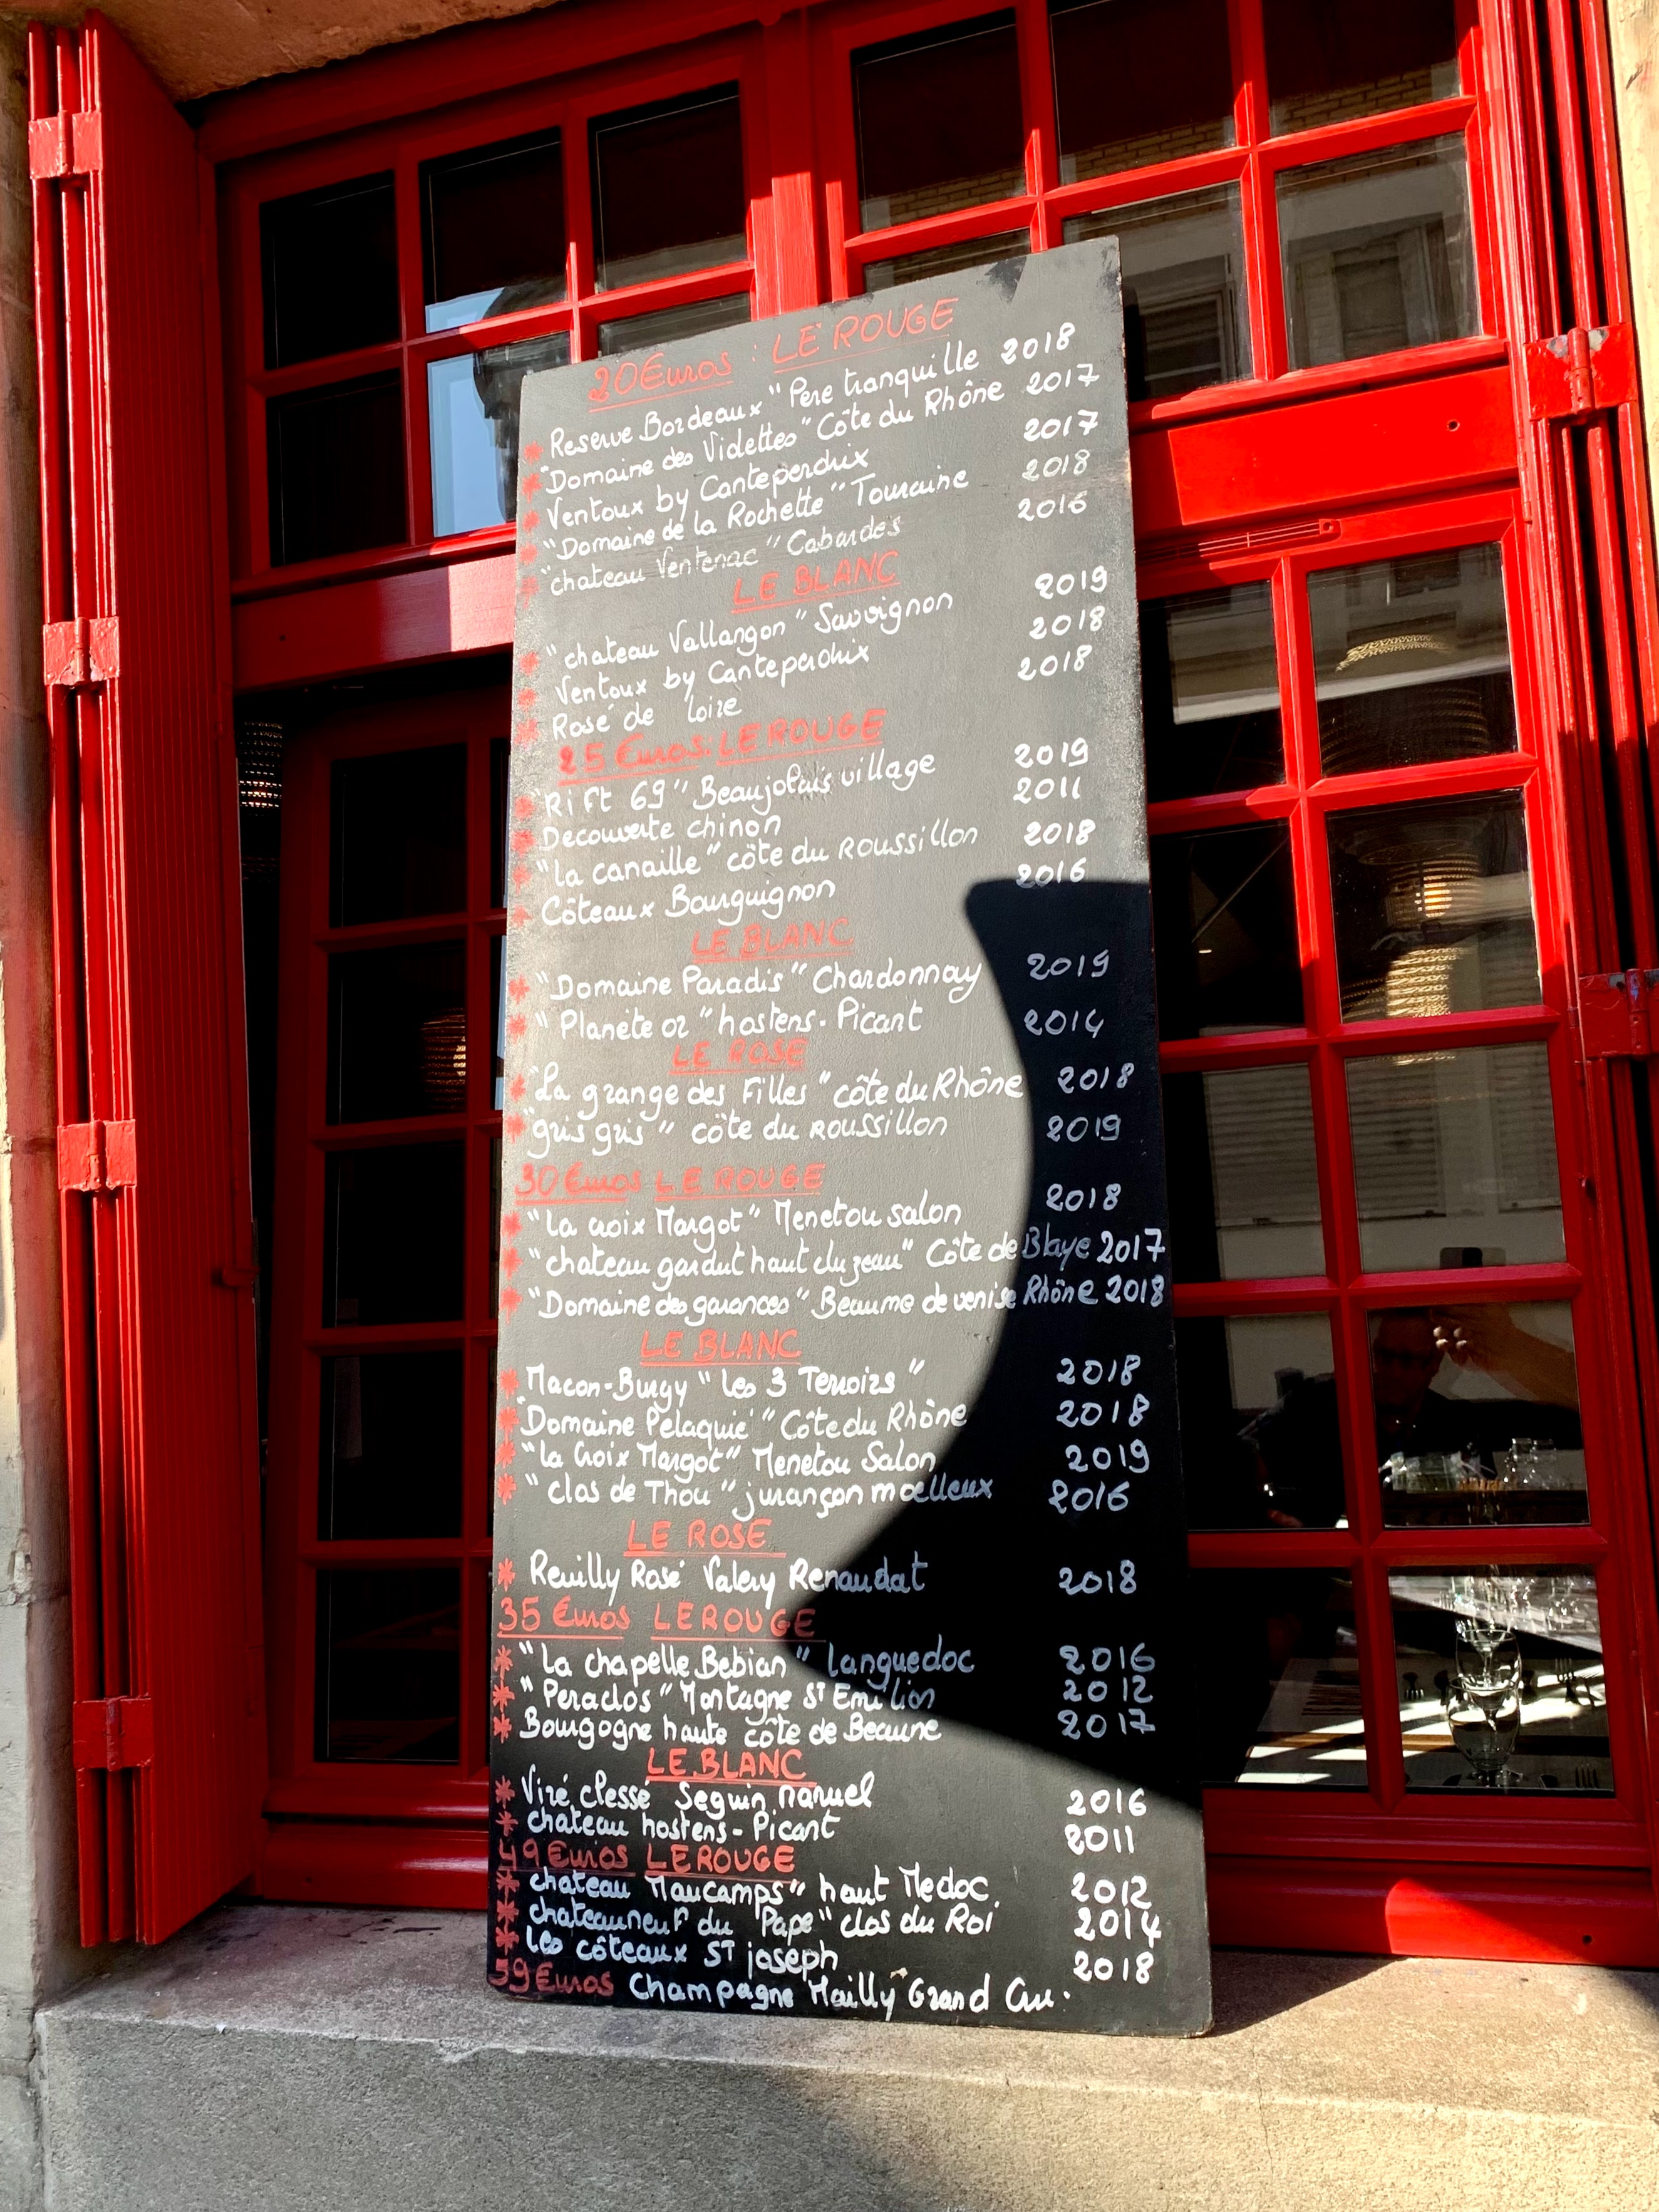 20 Euros : LE ROUGE
* Reserve Bordeaux "Pere tranquille 2018
* "Domaine des Videttes" Côte du Rhône 2017
* Ventoux by Canteperdrix 2017
* "Domaine de la Rochette" Touraine 2018
* "chateau Ventenac" Cabardes 2016
LE BLANC
* "chateau Vallangon" Sauvignon 2019
* Ventoux by Canteperdrix 2018
* Rosé de loire 2018
25 Euros: LE ROUGE
* "Rift 69" Beaujolais village 2019
* Decouverte chinon 2011
* "La canaille" côte du Roussillon 2018
* Côteaux Bourguignon 2016
LE BLANC
* "Domaine Paradis" Chardonnay 2019
* "Planète oz" hostens-Picant 2014
LE ROSE
* "La grange des Filles" côte du Rhône 2018
* "gris gris" côte du Roussillon 2019
30 Euros LE ROUGE
* "La croix Margot" Menetou salon 2018
* "chateau gardut haut cluzeau" Côte de Blaye 2017
* "Domaine des garances" Beaume de venise Rhône 2018
LE BLANC
* Macon-Burgy "Les 3 Terroirs" 2018
* "Domaine Pelaquié" Côte du Rhône 2018
* "la Croix Margot" Menetou Salon 2019
* "clos de Thou" jurançon moelleux 2016
LE ROSE
* Reuilly Rosé Valery Renaudat 2018
35 Euros LE ROUGE
* "La chapelle Bebian" languedoc 2016
* "Peraclos" Montagne St Emilion 2012
* Bourgogne haute côte de Beaune 2017
LE BLANC
* Viré clessé Seguin Manuel 2016
* chateau hostens-Picant 2011
49 Euros LE ROUGE
* chateau Maucamps" haut Medoc. 2012
* chateauneuf du "Pape" clos du Roi 2014
* les côteaux ST joseph 2018
59 Euros Champagne Mailly Grand Cru.